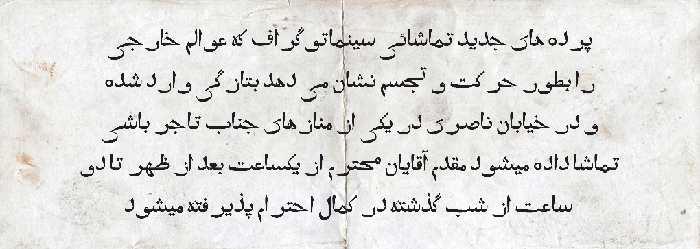 پرده های جدید تماشائی سینماتوگراف که عوالم خارجی
را بطور حرکت و تجسم نشان می دهد بتازگی وارد شده
و در خیابان ناصری در یکی از منازهای جناب تاجر باشی
تماشا داده میشود مقدم آقایان محترم از یکساعت بعد از ظهر تا دو
ساعت از شب گذشته در کمال احترام پذیرفته میشود